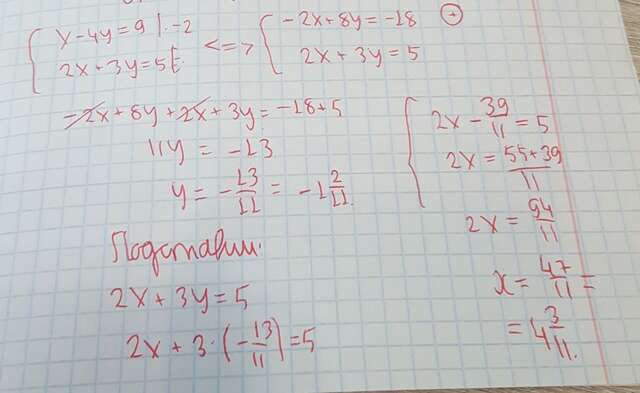 { x - 4y = 9 | · -2
{ 2x + 3y = 5
<=> { -2x + 8y = -18
{ 2x + 3y = 5
⊕
-2x + 8y + 2x + 3y = -18 + 5
11y = -13
y = -13/11 = -1 2/11
Подставим:
2x + 3y = 5
2x + 3 · (-13/11) = 5
{ 2x - 39/11 = 5
2x = (55+39)/11
2x = 94/11
x = 47/11 =
= 4 3/11.